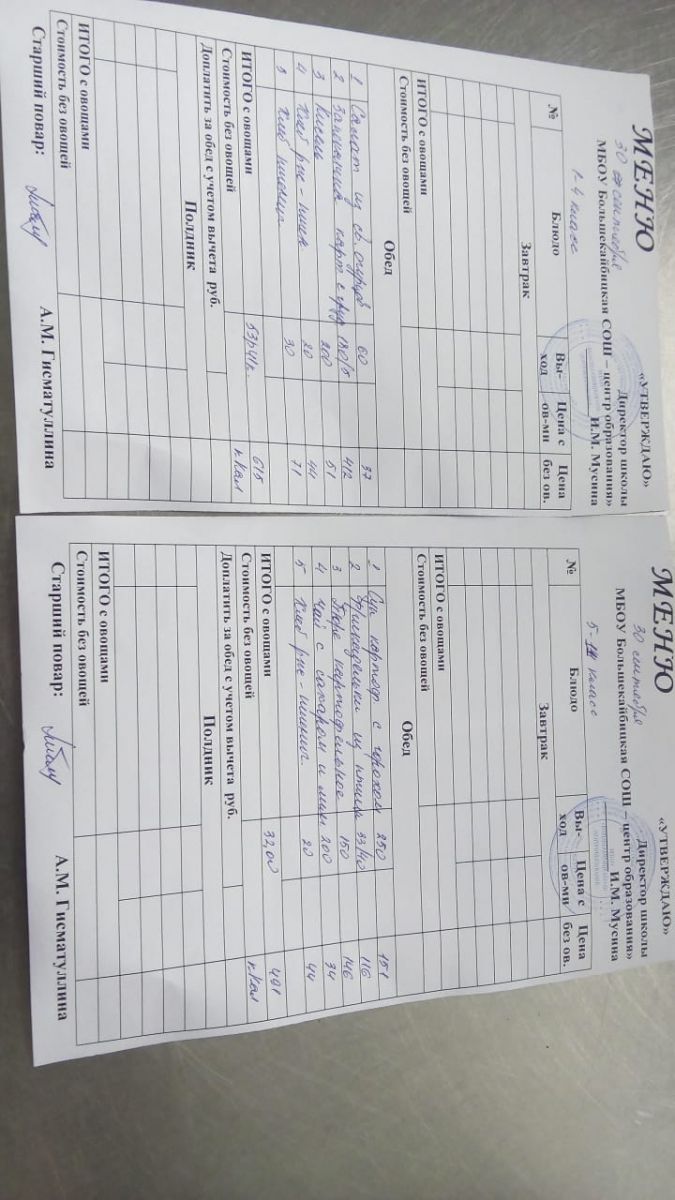 МЕНЮ
«УТВЕРЖДАЮ»
Директор школы
30 сентября
МБОУ Большекайбицкая СОШ – центр образования»
И.М. Мусина
1-4 класс
№ Блюдо Вы-ход Цена с ов-ми Цена без ов.
Завтрак
ИТОГО с овощами
Стоимость без овощей
Обед
1 Салат из св. огурцов 60 37
2 Запеканка карт с 180/5 412
3 Кисель 200 51
4 Хлеб рже-пшен 20 44
5 Хлеб пшениц 30 71
ИТОГО с овощами 53р41к. 615
Стоимость без овощей к.Кал
Доплатить за обед с учетом вычета руб.
Полдник
ИТОГО с овощами
Стоимость без овощей
Старший повар: А.М. Гисматуллина
МЕНЮ
«УТВЕРЖДАЮ»
Директор школы
30 сентября
МБОУ Большекайбицкая СОШ – центр образования»
И.М. Мусина
5-11 класс
№ Блюдо Вы-ход Цена с ов-ми Цена без ов.
Завтрак
ИТОГО с овощами
Стоимость без овощей
Обед
1 Суп картоф с горохом 250 151
2 Фрикадельки из птицы 116
3 Пюре картофельное 150 146
4 Чай с сахаром и 200 34
5 Хлеб рже-пшениг. 20 44
ИТОГО с овощами 32,00 491
Стоимость без овощей к.Кал
Доплатить за обед с учетом вычета руб.
Полдник
ИТОГО с овощами
Стоимость без овощей
Старший повар: А.М. Гисматуллина